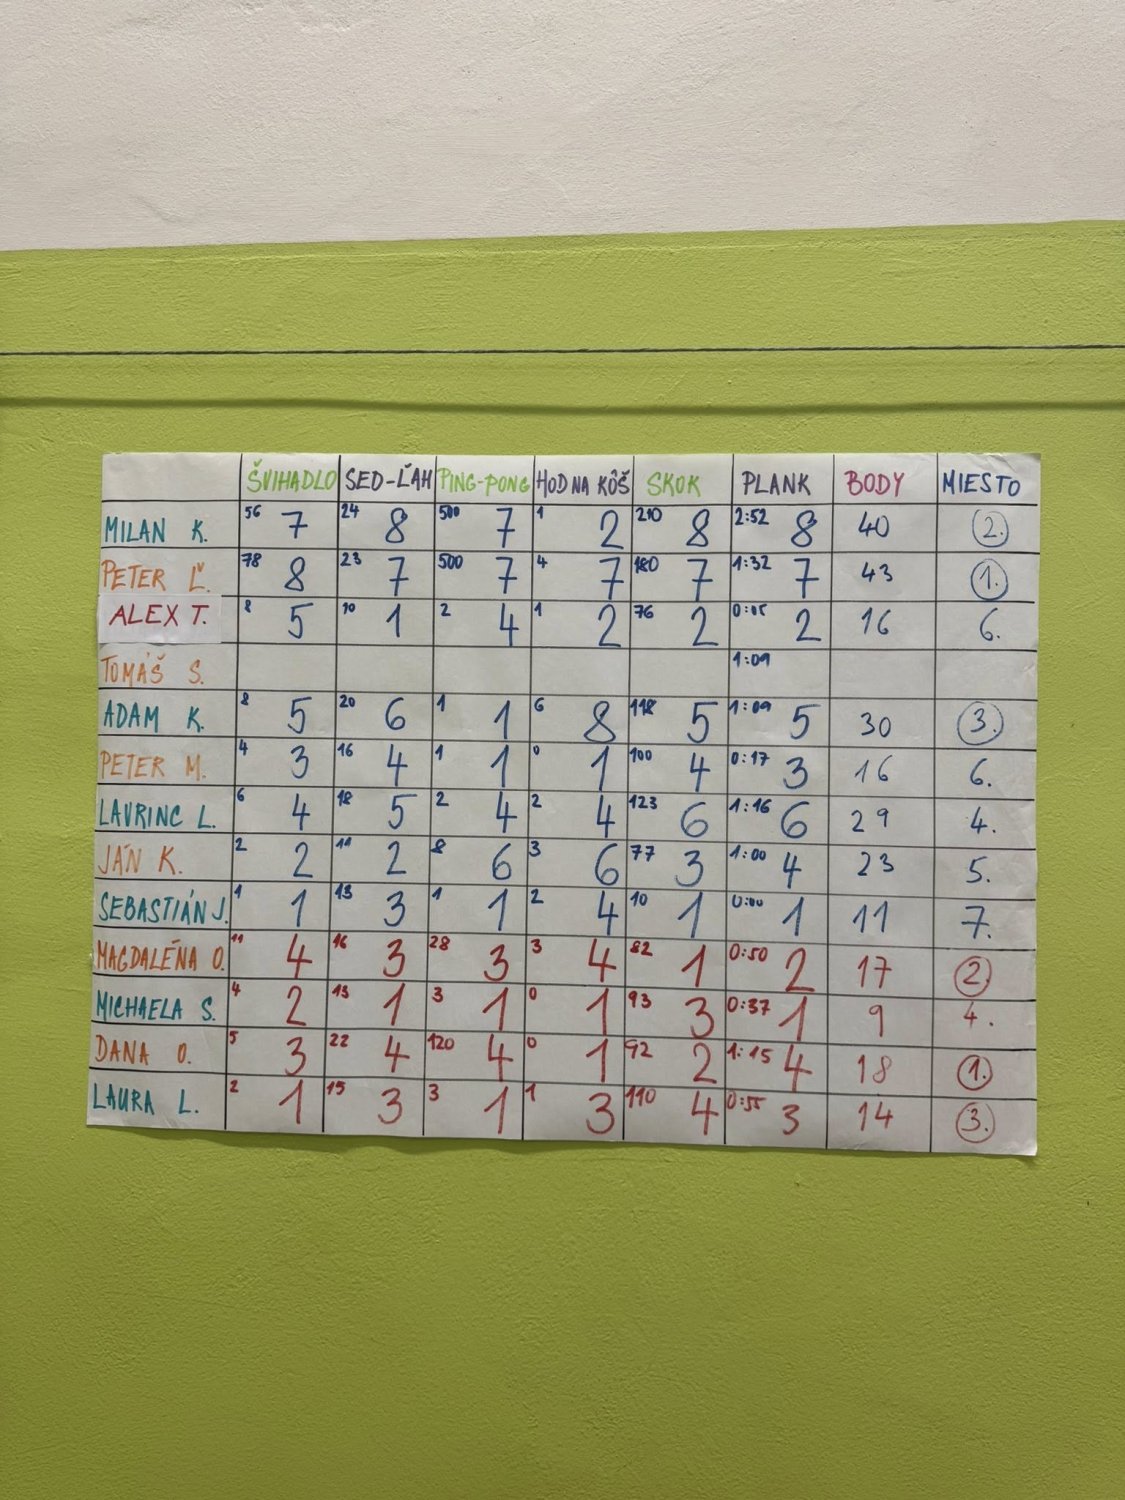 ŠVIHADLO SED-ĽAH PING-PONG HOD NA KÔŠ SKOK PLANK BODY MIESTO
MILAN K. 56 7 24 8 500 7 1 2 210 8 2:52 8 40 2.
PETER Ľ. 78 8 23 7 500 7 4 7 180 7 1:32 7 43 1.
ALEX T. 8 5 10 1 2 4 1 2 76 2 0:05 2 16 6.
TOMÁŠ S. 1:09
ADAM K. 8 5 20 6 1 1 6 8 118 5 1:09 5 30 3.
PETER M. 4 3 16 4 1 1 0 1 100 4 0:17 3 16 6.
LAVRINC L. 6 4 18 5 2 4 2 4 123 6 1:16 6 29 4.
JÁN K. 2 2 11 2 8 6 3 6 77 3 1:00 4 23 5.
SEBASTIÁN J. 1 1 13 3 1 1 2 4 10 1 0:00 1 11 7.
MAGDALÉNA O. 11 4 16 3 28 3 3 4 82 1 0:50 2 17 2
MICHAELA S. 4 2 13 1 3 1 0 1 93 3 0:37 1 9 4.
DANA O. 5 3 22 4 120 4 0 1 92 2 1:15 4 18 1.
LAURA L. 2 1 15 3 3 1 1 3 110 4 0:55 3 14 3.